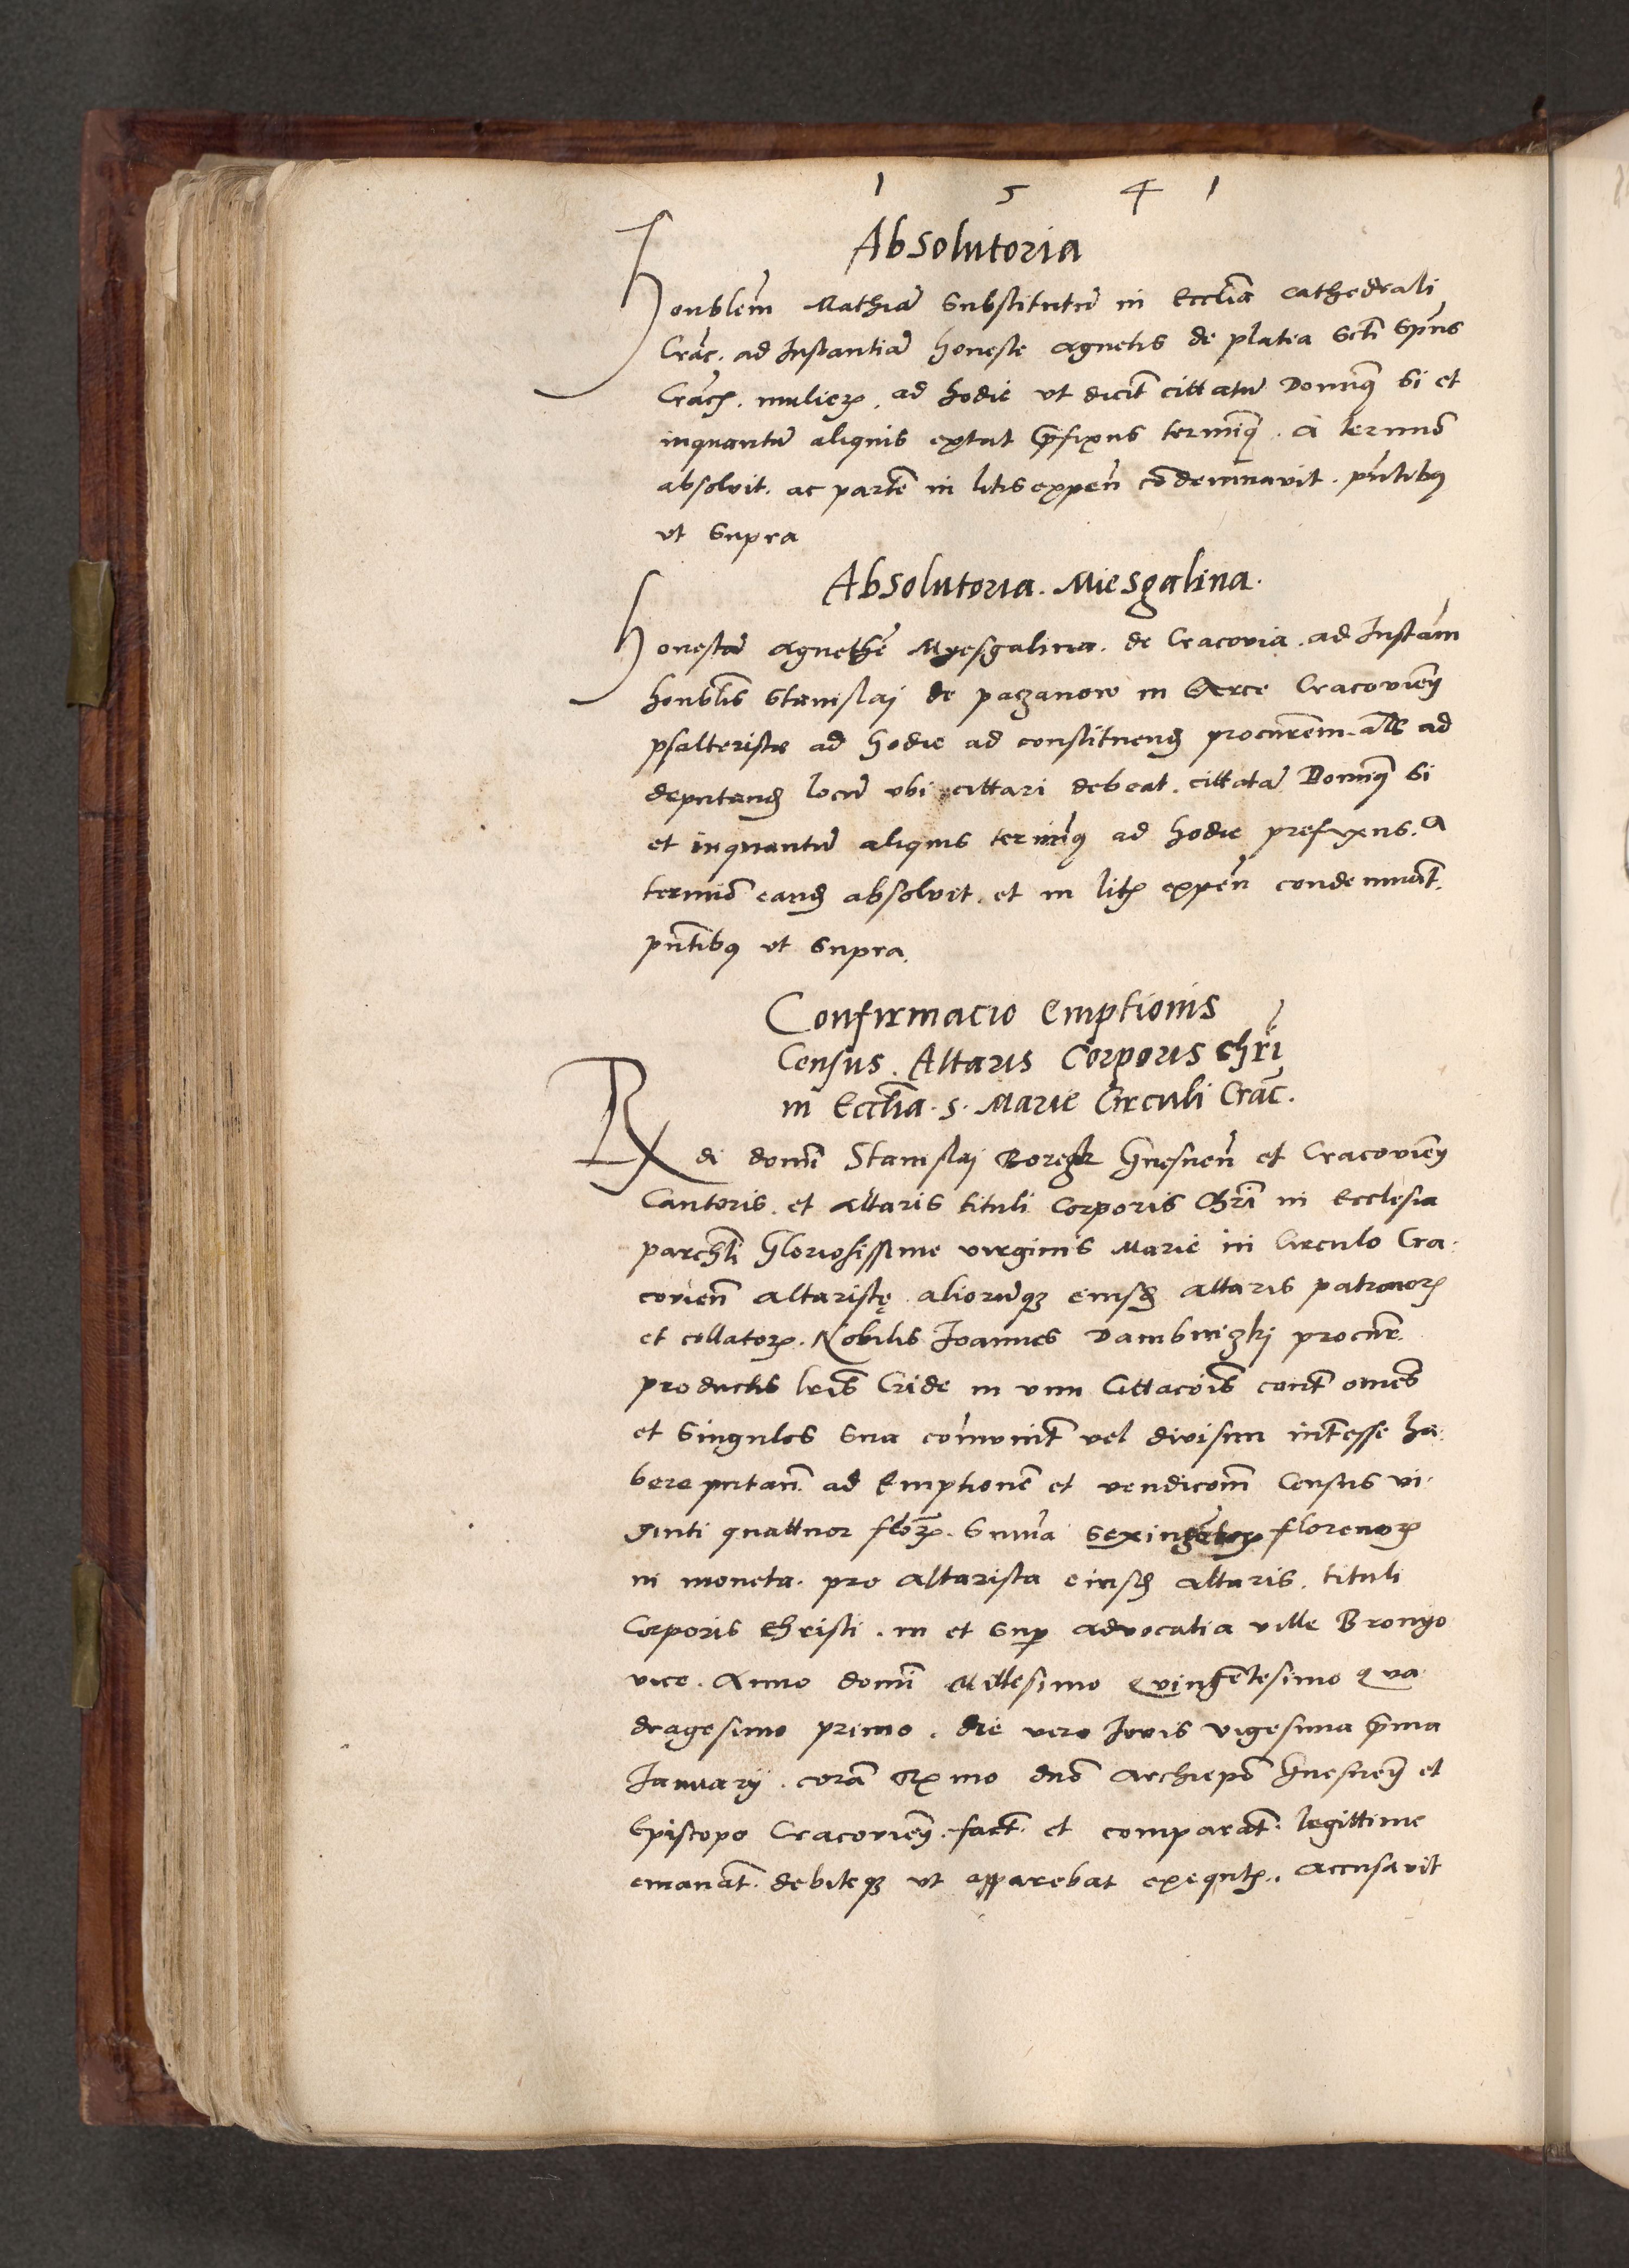 1 5 4 1
Absolutoria
Honublem̃ Mathiã Substitutũ in Ecclĩa Cathedrali
Crac̃. ad Instantiã honeste Agnetis de platea Scti Spũs
Crac̃. mulieꝝ. ad hodie ut dicit̃ cittatũ Domiꝰ Si et
inquantũ aliquis extitit p̃fixus termiꝰ. A termiõ
absolvit. ac partẽ in litis expeñ cõdemnavit. pñtibꝰ
ut Supra
Absolutoria. Miesgalina.
Honestã Agnethẽ Myesgalina. de Cracovia. ad Instãm
honublis Stanislaj de paczanow in Arce Cracovieñ
psalteriste ad hodie ad constituenđ procurem̃. als̃ ad
deputanđ locũ ubi cittari debeat. cittatã Domiꝰ Si
et inquantũ aliquis termiꝰ ad hodie prefixus. A
termiõ eanđ absolvit. et in litis expeñ condemnat̃.
pñtibꝰ ut Supra.
Confirmacio Emptionis
Census. Altaris Corporis Chr̃i
in Ecclĩa. S. Marie Circuli Crac̃.
Rdi domĩ Stanislaj Borek Gnesneñ et Cracovieñ
Cantoris. et altaris tituli Corporis Chr̃i in Ecclesia
parochli Gloriosissime virginis Marie in Circulo Cra-
covieñ altaristę aliorũqꝫ eiusđ altaris patronoꝝ
et collatoꝝ. Nobilis Joannes Dambnizkj procur̃.
productis lrĩs Cride in vim Cittacõis cont̃ om̃es
et Singulos Sua com̃unit̃ vel divisim int̃esse ha-
bere putañ. ad Emptionẽ et vendicom̃ Census vi-
ginti quattuor floꝝ. Sum̃a Sexingẽtoꝝ florenoꝝ
in moneta. pro altarista eiusđ altaris. tituli
Corporis Christi. in et Suꝑ advocatia ville Bronyo
vice. Anno domĩ Millesimo Quingẽtesimo Qua
dragesimo primo. die vero Jovis vigesima p̃ma
Januarij. corã Rmo dnõ Archiepõ Gnesneñ et
Episcopo Cracovieñ. fact̃. et comparat̃. legittime
emanat̃. debiteqꝫ ut apparebat exequt̃. Accusavit